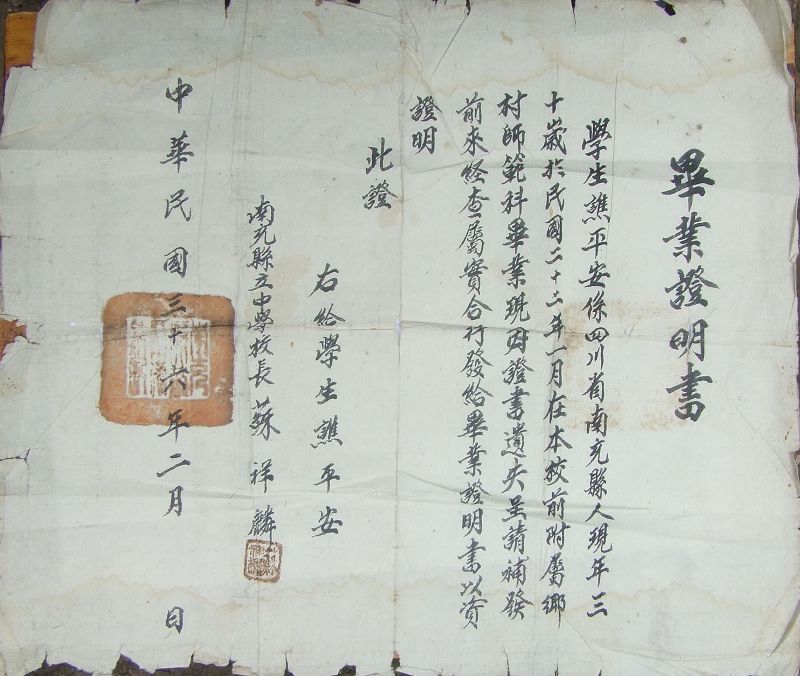 畢業證明書
學生譙平安係四川省南充縣人現年三
十歲於民國二十二年一月在本校前附屬鄉
村師範科畢業現因證書遺失呈請補發
前來經查屬實合行發給畢業證明書以資
證明
此證
右給學生譙平安
南充縣立中學校長蘇祥麟
中華民國三十六年二月 日